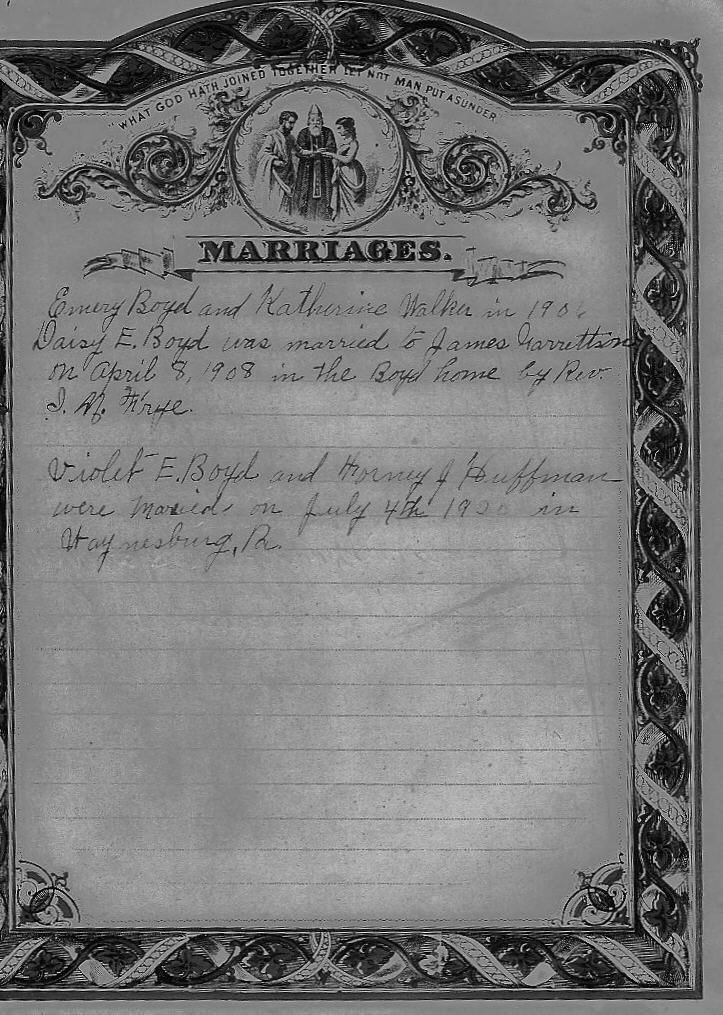 "WHAT GOD HATH JOINED TOGETHER LET NOT MAN PUT ASUNDER
MARRIAGES.
Emery Boyd and Katherine Walker in 190
Daisy E. Boyd was married to James Garrettson
on April 8, 1908 in the Boyd home by Rev.
Frye.
Violet E. Boyd and J Huffman
were Maried on July 4th 1920 in
Waynesburg, Pa.